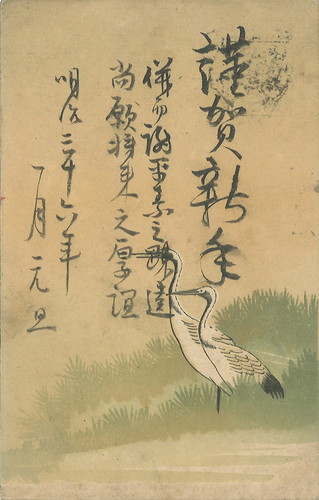 謹賀新年
併而謝平素之疎遠
尚願将来之厚誼
明治三十六年
一月元旦